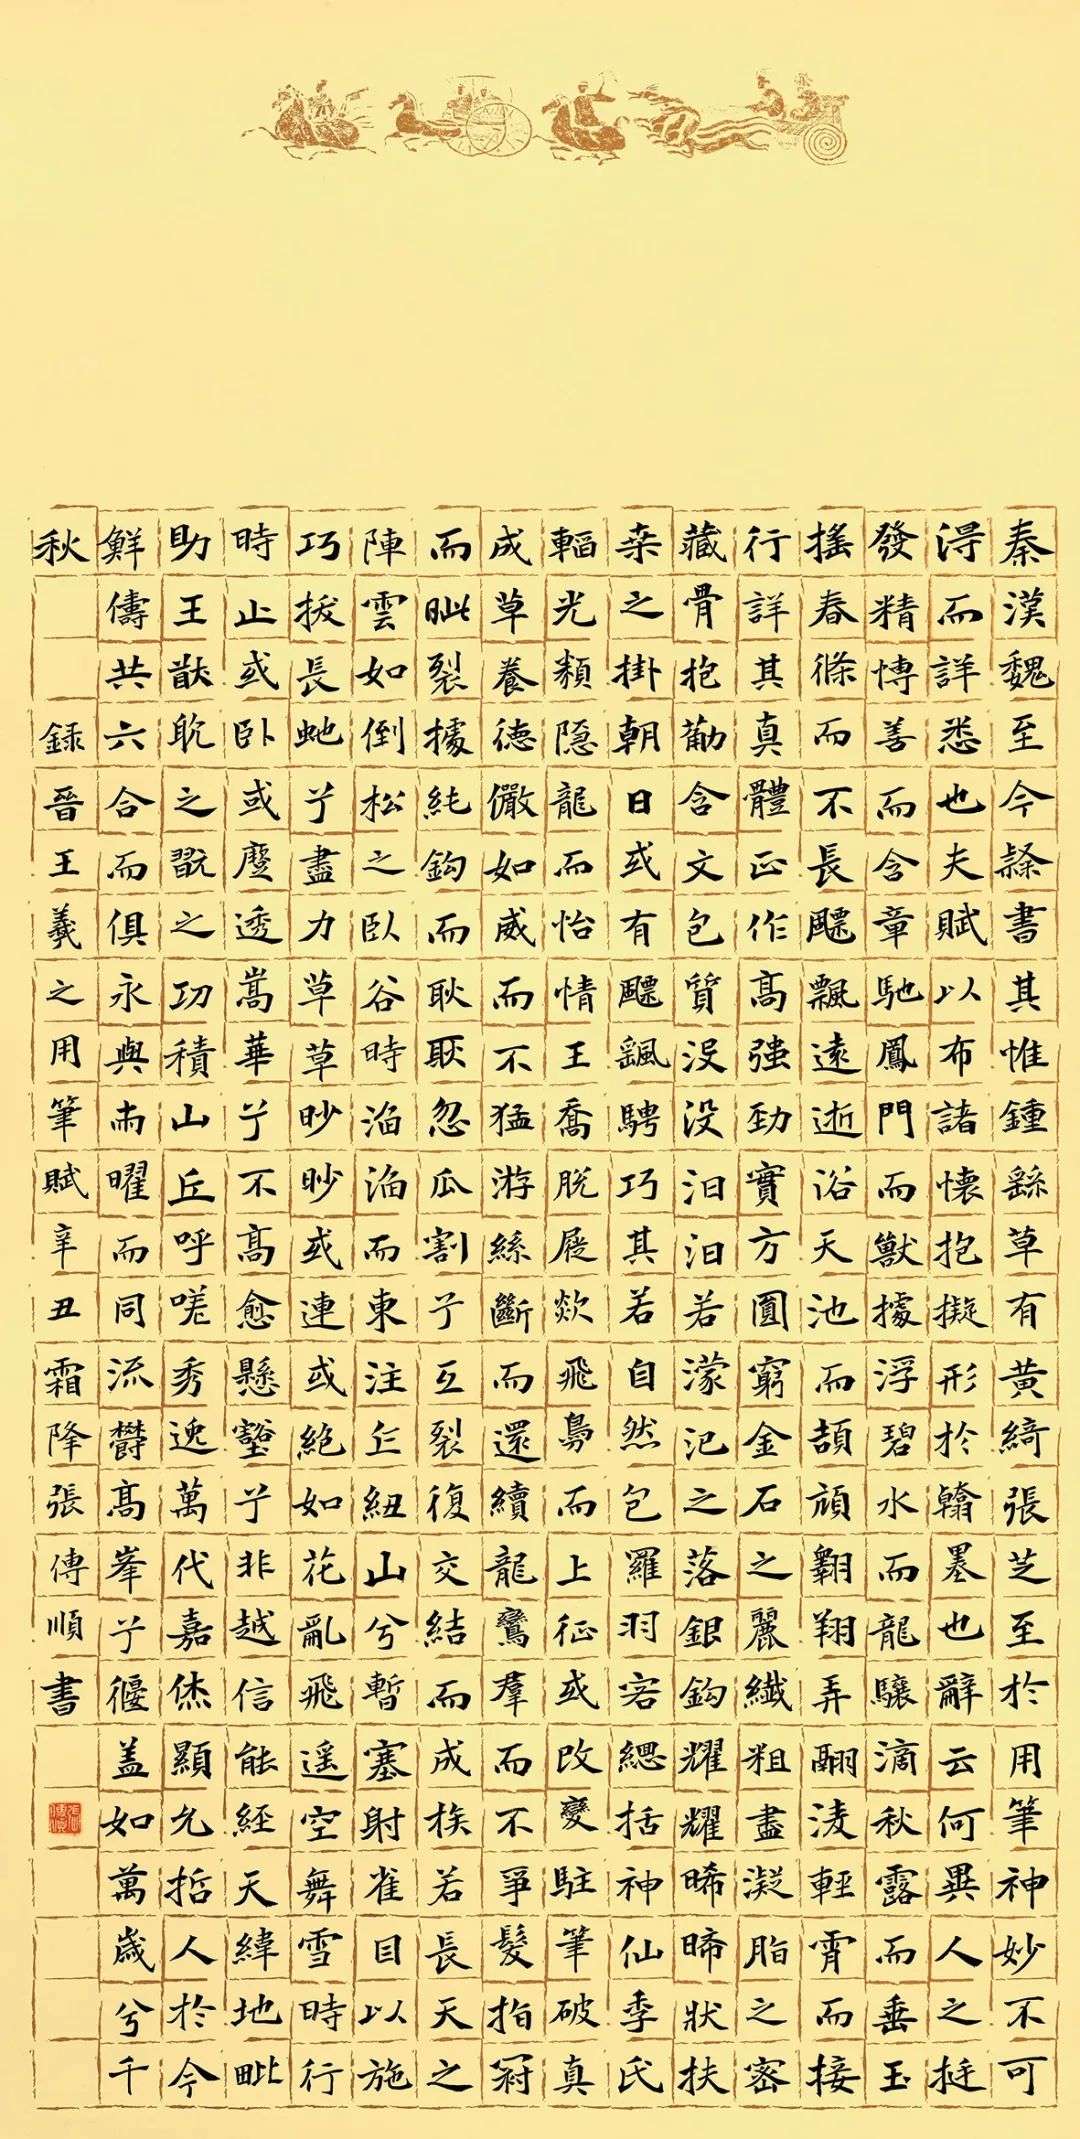 秦漢魏至今隸書其惟鍾繇草有黃綺張芝至於用筆神妙不可
得而詳悉也夫賦以布諸懷抱擬形於翰墨也辭云何異人之挺
發精博善而含章馳鳳門而獸據浮碧水而龍驤滴秋露而垂玉
搖春條而不長飃飄遠逝浴天池而頡頏翱翔弄翮淩輕霄而接
行詳其真體正作高強勁實方圓窮金石之麗纖粗盡凝脂之密
藏骨抱筋含文包質没没汩汩若濛汜之落銀鈎耀耀晞晞狀扶
桒之掛朝日或有飃颻騁巧其若自然包羅羽客總括神仙季氏
韜光類隱龍而怡情王喬脫屣欻飛鳧而上征或改變駐筆破真
成草養德儼如威而不猛游絲斷而還續龍鸞羣而不爭髮指冠
而眦裂據純鈎而耿耿忽瓜割兮互裂復交結而成族若長天之
陣雲如倒松之臥谷時滔滔而東注乍紐山兮暫塞射雀目以施
巧拔長虵兮盡力草草眇眇或連或絕如花亂飛遥空舞雪時行
時止或臥或蹷透嵩華兮不高愈懸壑兮非越信能經天緯地毗
助王猷耽之翫之功積山丘吁嗟秀逸萬代嘉休顯允哲人於今
鮮儔共六合而俱永與兩曜而同流鬱高峯兮偃盖如萬歲兮千
秋 錄晉王羲之用筆賦辛丑霜降張傳順書